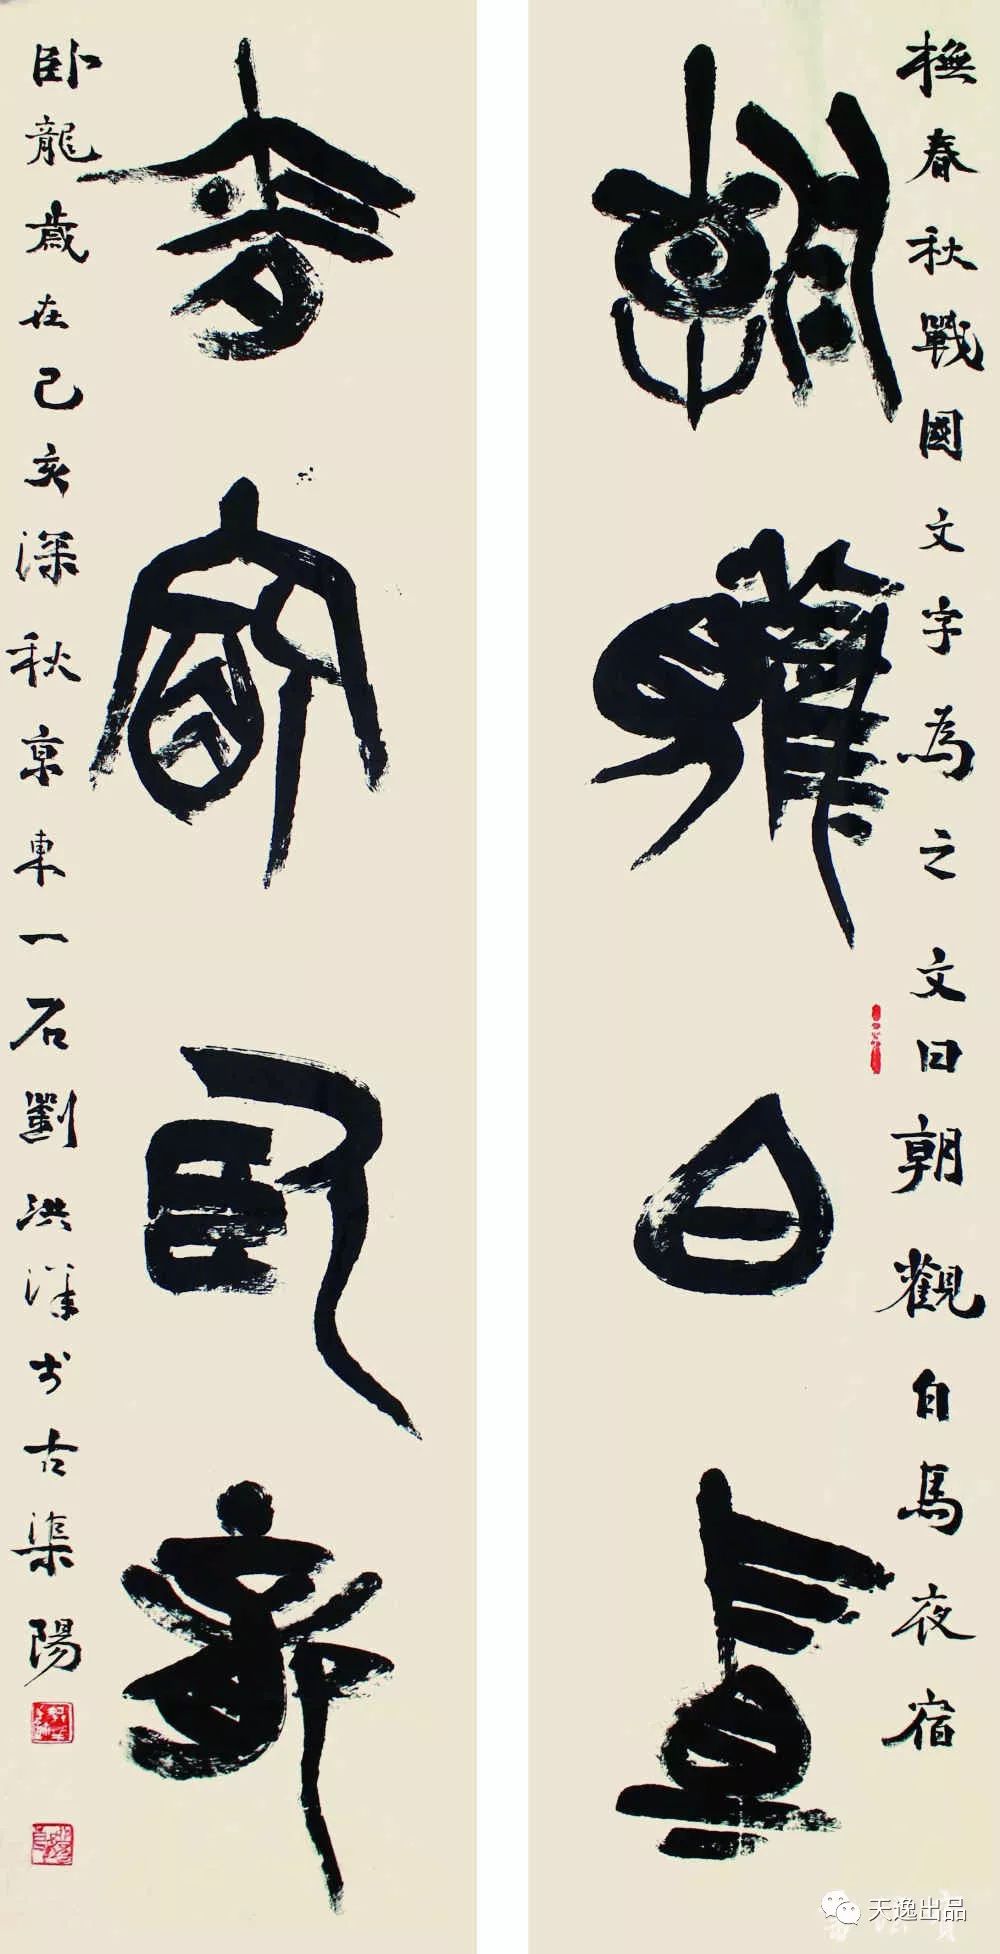 橅春秋戰國文字為之文曰朝觀白馬夜宿
朝觀白馬
夜宿臥龍
卧龍歲在己亥深秋京東一石劉洪洋书古渠陽
天逸出品